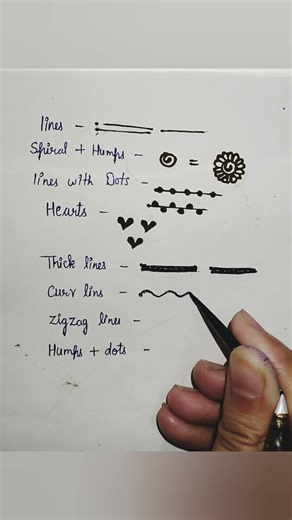 lines -
Spiral + Humps - =
lines with Dots -
Hearts -
Thick lines -
Curv lins -
Zigzag lines -
Humps + dots -